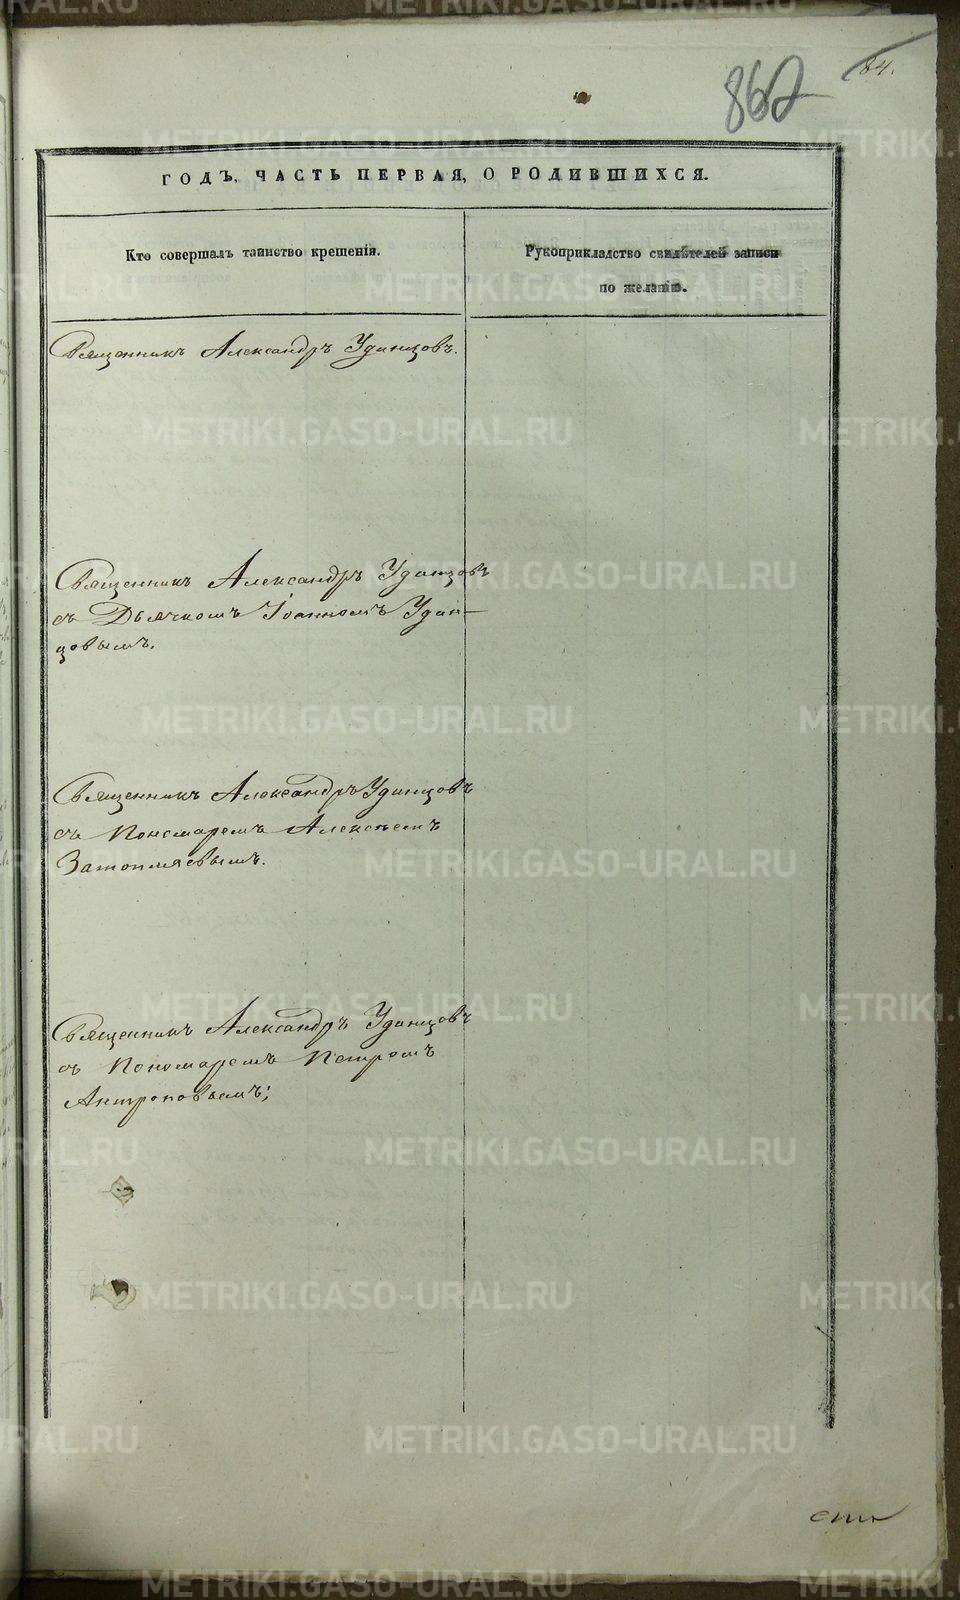 84.
862
ГОДЪ, ЧАСТЬ ПЕРВАЯ, О РОДИВШИХСЯ.
Кто совершалъ таинство крещенія.
Рукоприкладство свидѣтелей записи
по желанію.
Священникъ Александръ Удинцовъ.
Священникъ Александръ Удинцовъ
съ Дьячкомъ Іоанномъ Удин-
цовымъ.
Священникъ Александръ Удинцовъ
съ Пономаремъ Алексѣемъ
Затопляевымъ.
Священникъ Александръ Удинцовъ
съ Пономаремъ Петромъ
Антроповымъ;
METRIKI.GASO-URAL.RU